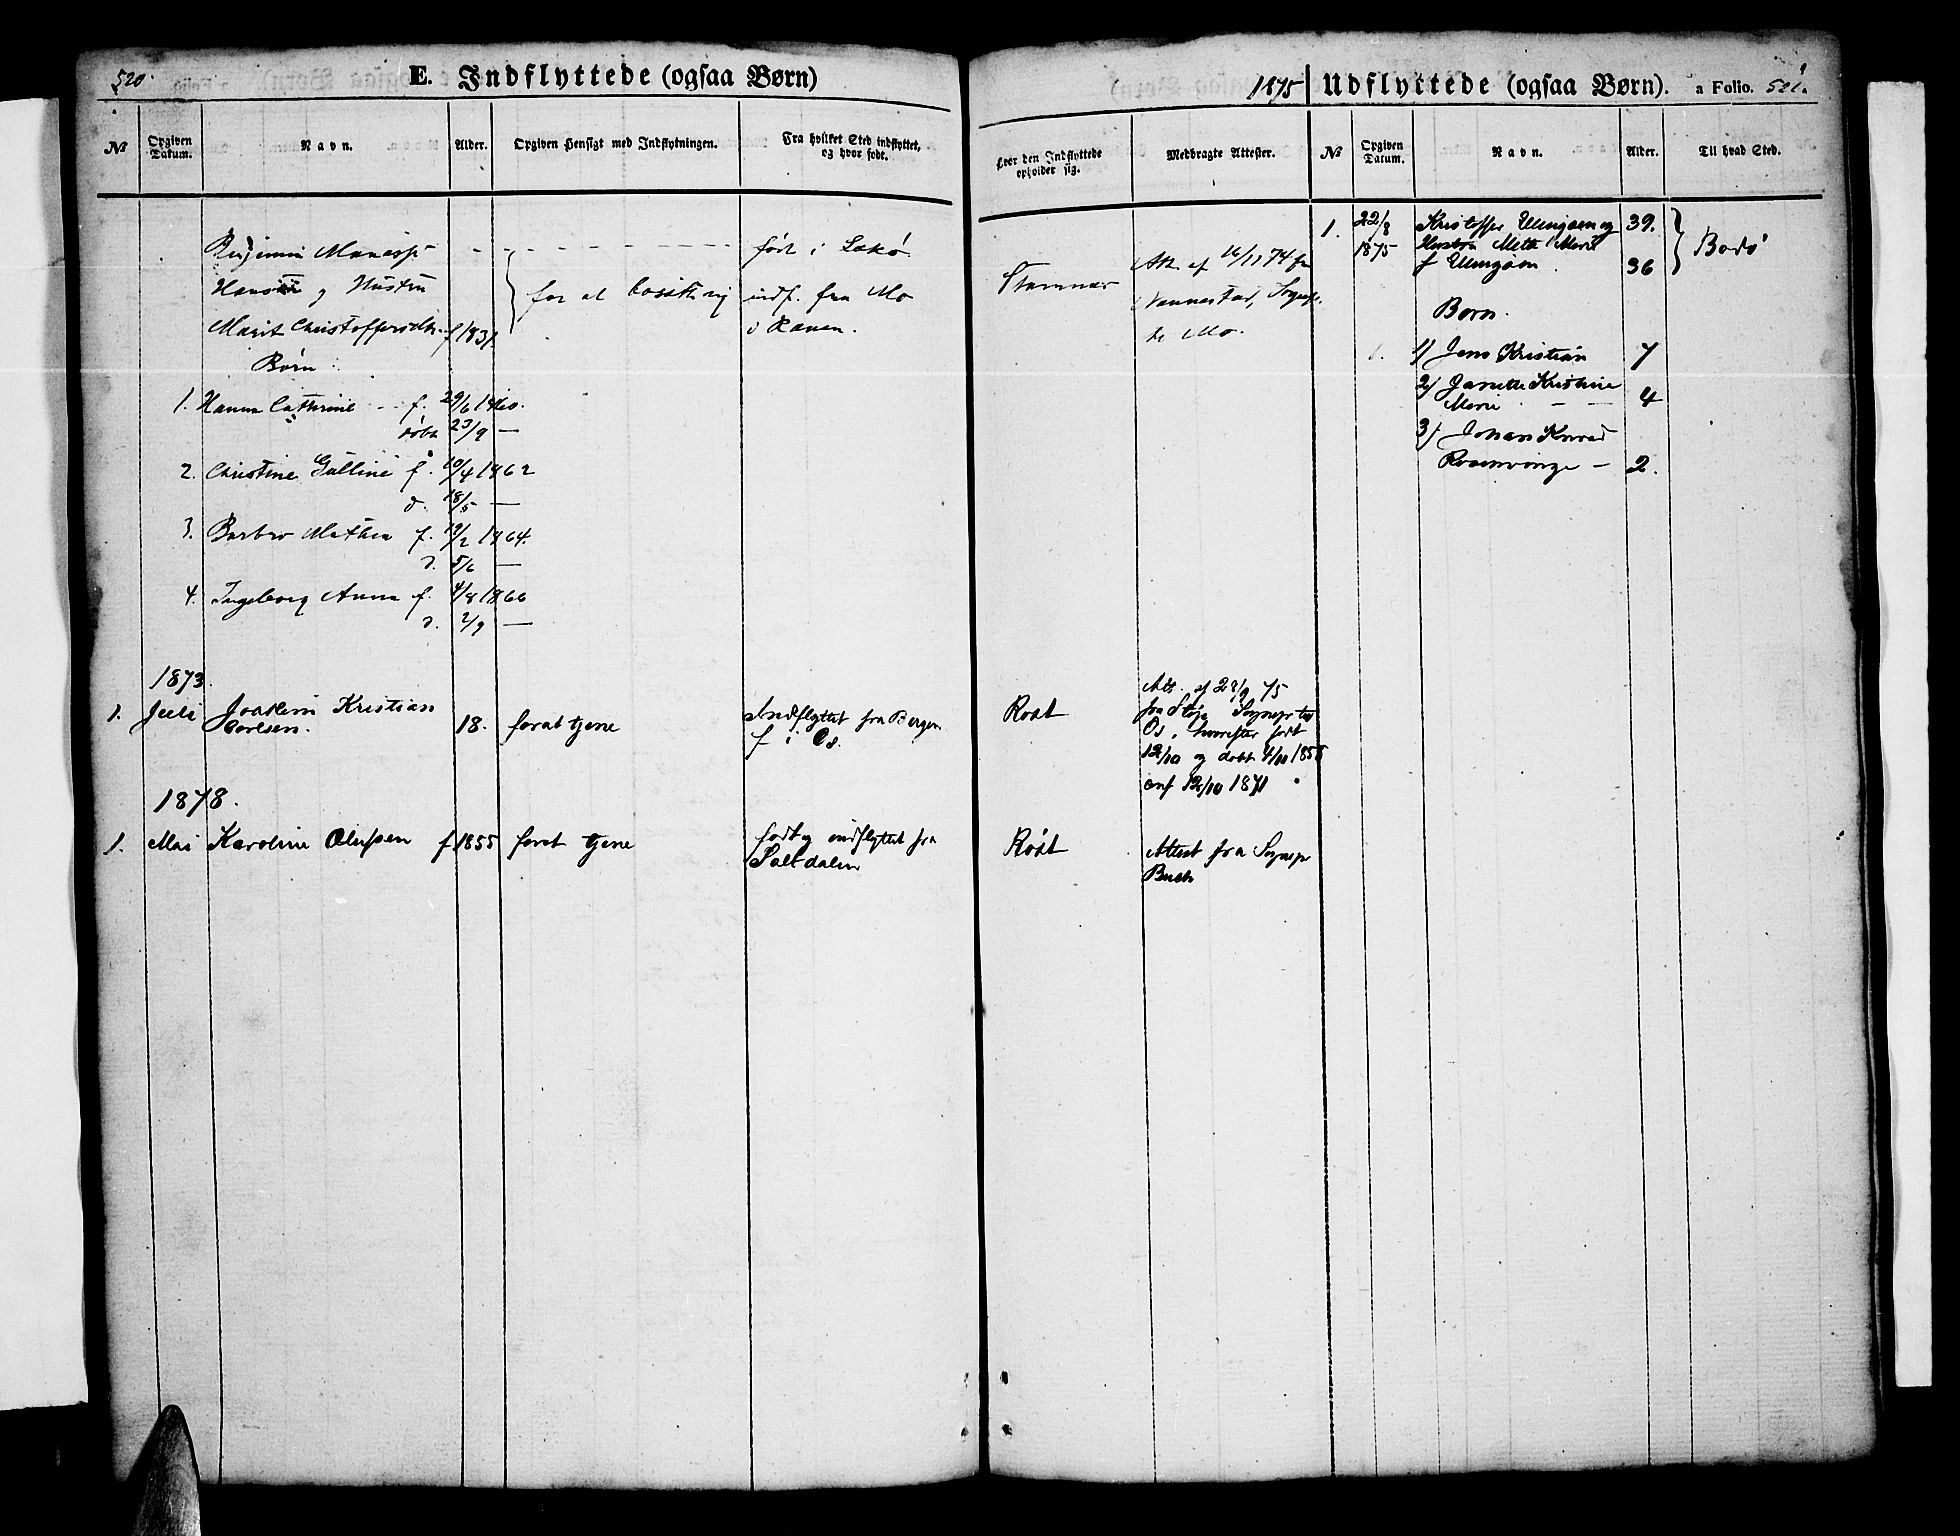 520
E. Indflyttede (ogsaa Børn)
№
Opgiven Datum.
Navn.
Alder.
Opgiven Hensigt med Indflytningen.
Fra hvilket Sted indflyttet, og hvor født.
Benjamin
født i
Hansen og Hustru
for at bosætte sig
indf. fra Mo
Marit Christoffersdtr. f 1831
i Ranen.
Børn
1. Hanna Cathrine f. 29/6 1860.
døbt 23/9 —
2. Christine Gulline f. 10/4 1862
d. 18/5 —
3. Barbro Mathea f. 19/2 1864.
d. 5/6 —
4. Ingeborg Anna f. 4/8 1866
d. 2/9 —
1873.
1. Juli Joakim Kristian
Carlsen.
18. forat tjene
Indflyttet fra Bergen
f i Os.
1878.
1. Mai Karoline Olufsen f 1855 forat tjene
født og indflyttet fra
Saltdalen
1875
Udflyttede (ogsaa Børn). a Folio. 521.
Hvor den Indflyttede opholder sig.
Medbragte Attester.
№
Opgiven Datum.
Navn.
Alder.
Til hvad Sted.
Stamnes
Att. af 16/11 74 fra
Nannestad, Sognepr.
til Mo.
Røst
Att. af 28/9 75
fra Sognepr til
Os, hvorefter født
12/10 og døbt 1/11 1855
conf 12/10 1871
Røst
Attest fra Sognepr
1. 22/8 1875
Kristoffer Ellingsen og 39.
Hustru Mette Marit
f Ellingsen. 36
Bodø
Børn.
1) Jens Kristian 7
2) Janette Kristine
Marie — — 4
3) Johan Konrad
Rosenvinge — 2.